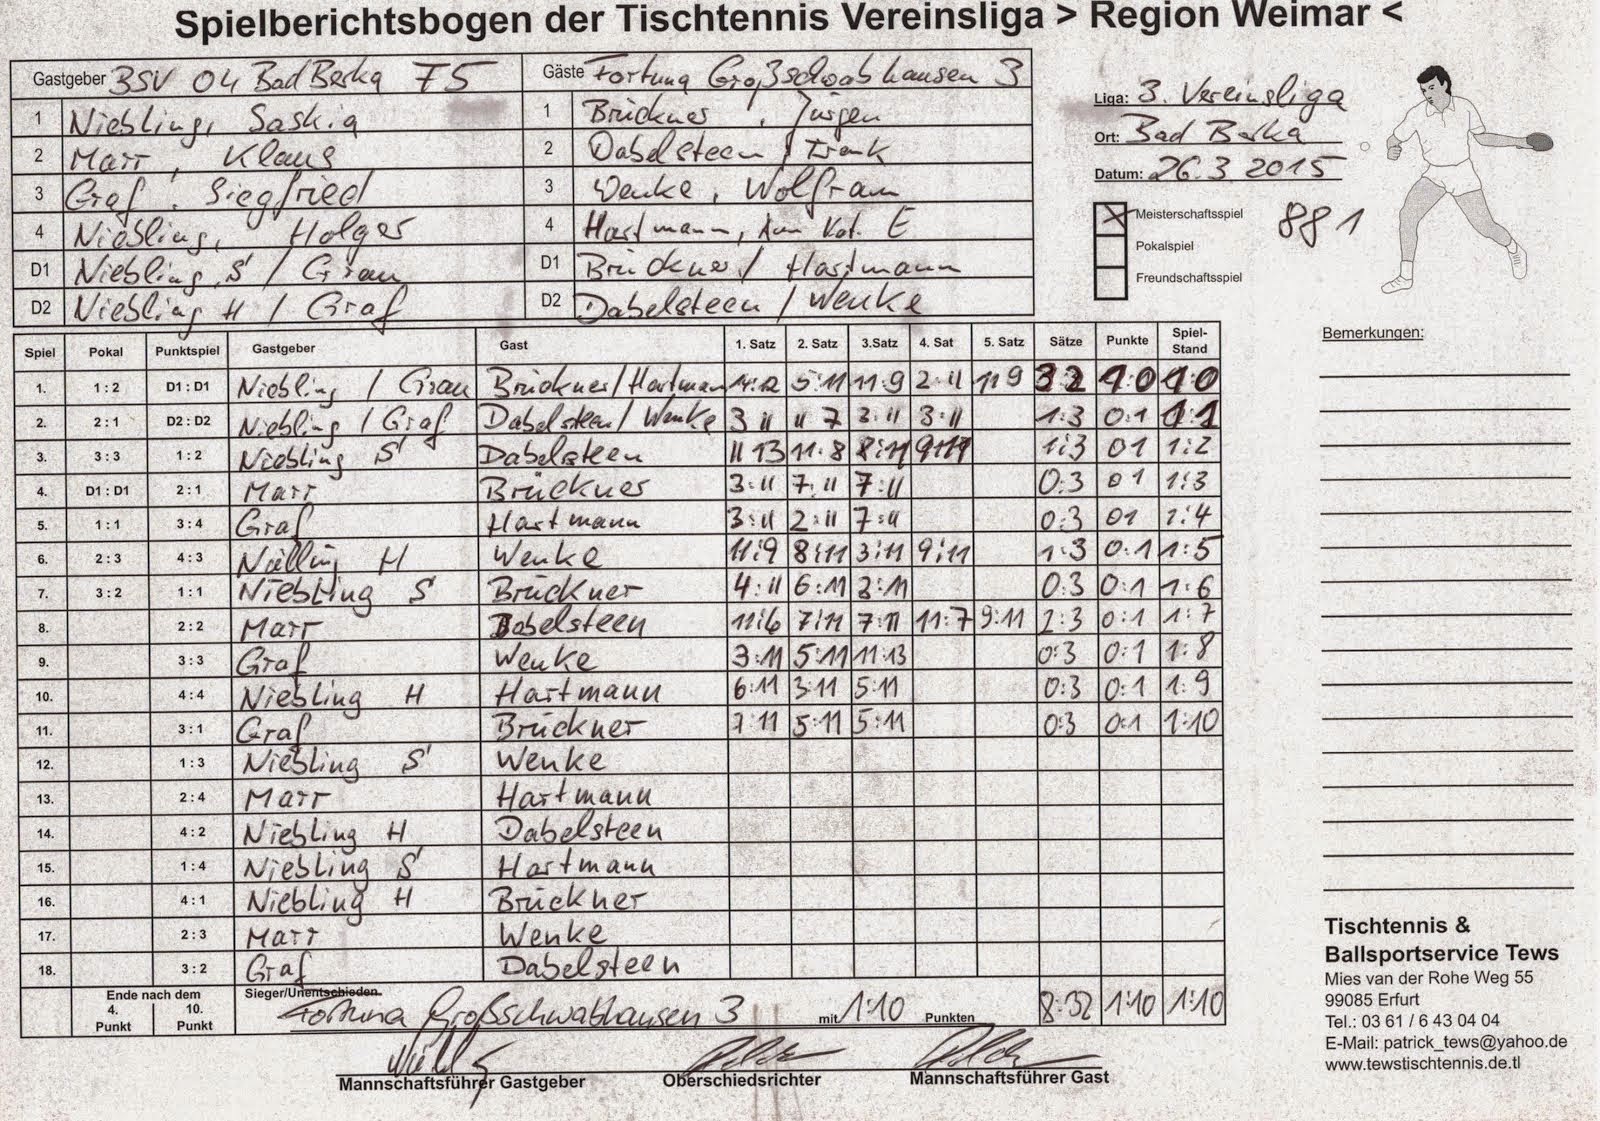 Spielberichtsbogen der Tischtennis Vereinsliga > Region Weimar <
Gastgeber BSV 04 Bad Berka F5 Gäste Fortuna Großschwabhausen 3
1 Niebling, Saskia 1 Brückner, Jürgen
2 Marr, Klaus 2 Dabelsteen, Frank
3 Graf, Siegfried 3 Wenke, Wolfram
4 Niebling, Holger 4 Hartmann, E
D1 Niebling, S / Grau D1 Brückner / Hartmann
D2 Niebling H / Graf D2 Dabelsteen / Wenke
Liga: 3. Vereinsliga
Ort: Bad Berka
Datum: 26.3.2015
Meisterschaftsspiel 881
Pokalspiel
Freundschaftsspiel
Bemerkungen:
Spiel Pokal Punktspiel Gastgeber Gast 1. Satz 2. Satz 3.Satz 4. Sat 5. Satz Sätze Punkte Spiel-Stand
1. 1 : 2 D1 : D1 Niebling / Grau Brückner/Hartmann 14:12 5:11 11:9 2:11 11 9 3 2 1 0 1 0
2. 2 : 1 D2 : D2 Niebling / Graf Dabelsteen/ Wenke 3 11 11 7 3:11 3:11 1:3 0:1 1 1
3. 3 : 3 1 : 2 Niebling S Dabelsteen 11 13 11:8 8:11 1:3 0 1 1:2
4. D1 : D1 2 : 1 Marr Brückner 3:11 7:11 7:11 0:3 0 1 1:3
5. 1 : 1 3 : 4 Graf Hartmann 3:11 2:11 7:11 0:3 01 1:4
6. 2 : 3 4 : 3 Niebling H Wenke 11:9 8:11 3:11 9:11 1:3 0:1 1:5
7. 3 : 2 1 : 1 Niebling S Brückner 4:11 6:11 3:11 0:3 0:1 1:6
8. 2 : 2 Marr Dabelsteen 11:6 7:11 7:11 11:7 9:11 2:3 0:1 1:7
9. 3 : 3 Graf Wenke 3:11 5:11 11:13 0:3 0:1 1:8
10. 4 : 4 Niebling H Hartmann 6:11 3:11 5:11 0:3 0:1 1:9
11. 3 : 1 Graf Brückner 7:11 5:11 5:11 0:3 0:1 1:10
12. 1 : 3 Niebling S Wenke
13. 2 : 4 Marr Hartmann
14. 4 : 2 Niebling H Dabelsteen
15. 1 : 4 Niebling S Hartmann
16. 4 : 1 Niebling H Brückner
17. 2 : 3 Marr Wenke
18. 3 : 2 Graf Dabelsteen
Ende nach dem 4. Punkt 10. Punkt Sieger/Unentschieden Fortuna Großschwabhausen 3 mit 1:10 Punkten 8:32 1:10 1:10
Mannschaftsführer Gastgeber Oberschiedsrichter Mannschaftsführer Gast
Tischtennis &
Ballsportservice Tews
Mies van der Rohe Weg 55
99085 Erfurt
Tel.: 03 61 / 6 43 04 04
E-Mail: patrick_tews@yahoo.de
www.tewstischtennis.de.tl